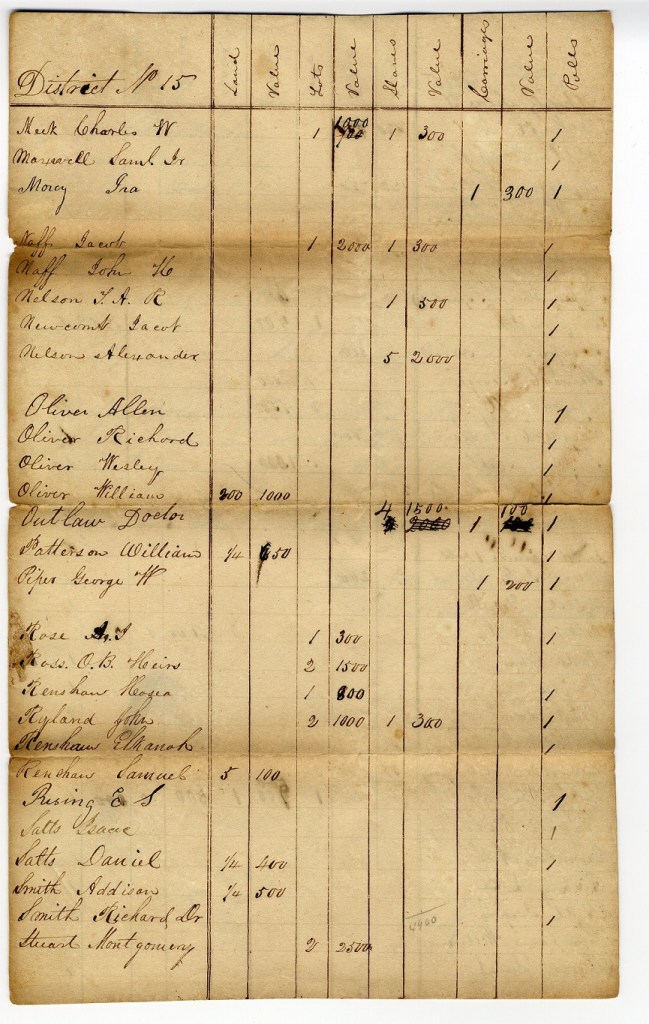 District No 15 Land Value Lots Value Slaves Value Carriages Value Polls
Meek Charles W 1 1000 700 1 300 1
Maxwell Saml. Dr 1
Morcy Ira 1 300 1
Naff Jacob 1 2000 1 300 1
Naff John H 1
Nelson T. A. R 1 500 1
Newcomb Jacob 1
Nelson Alexander 5 2000 1
Oliver Allen 1
Oliver Richard 1
Oliver Wesley 1
Oliver William 200 1000 1
Outlaw Doctor 4 1500 1 100 1
Patterson William 1/4 650 1
Piper George W 1 200 1
Rose A. J 1 300 1
Ross. O. B. Heirs 2 1500
Renshaw Hosea 1 800 1
Ryland John 2 1000 1 300 1
Renshaw Elkanah 1
Renshaw Samuel 5 100
Rising E S 1
Satts Isaac 1
Satts Daniel 1/4 400 1
Smith Addison 1/4 500
Smith Richard, Dr 1
4400
Stuart Montgomery 2 2500